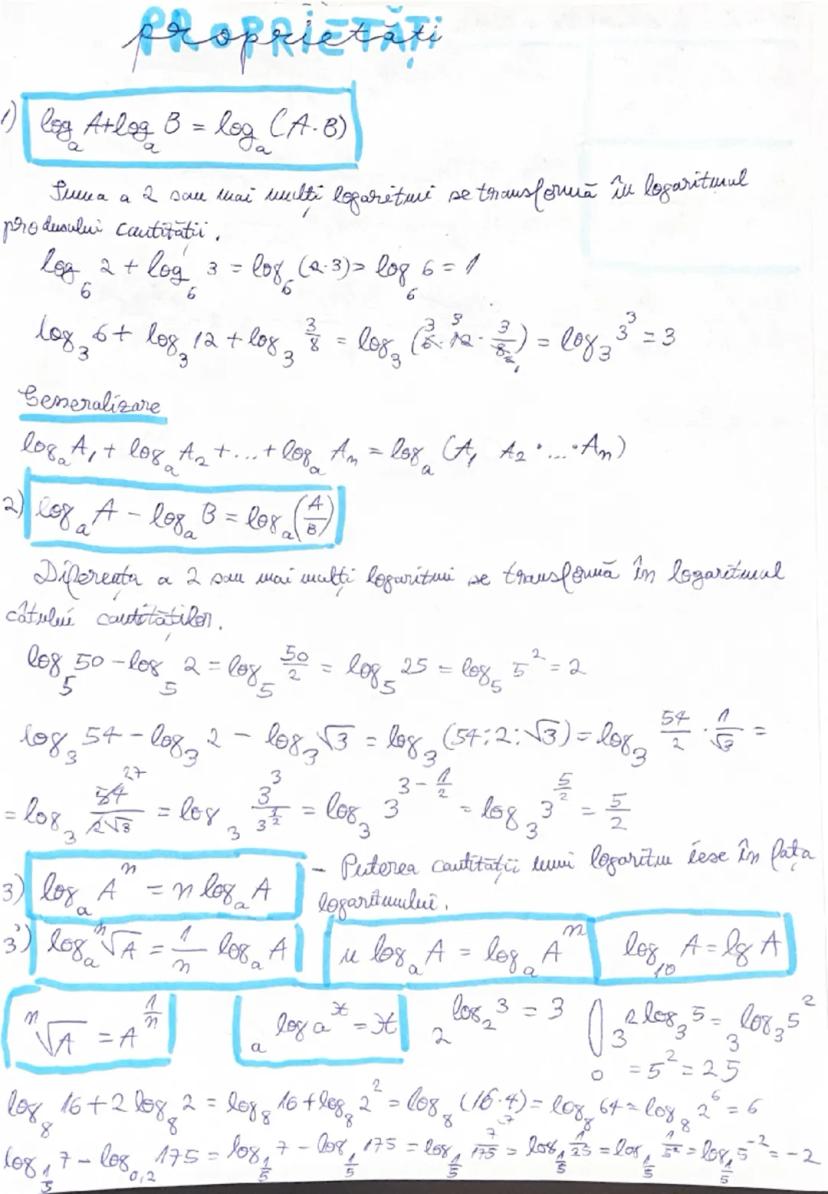 PROPRIETĂȚI
proprietăți
1) logₐ A + logₐ B = logₐ (A·B)
Suma a 2 sau mai mulți logaritmi se transformă în logaritmul
produsului cantității.
log₆ 2 + log₆ 3 = log₆ (2·3) = log₆ 6 = 1
log₃ 6 + log₃ 12 + log₃ 3/8 = log₃ (6·12·3/8) = log₃ 3³ = 3
Generalizare
logₐ A₁ + logₐ A₂ + ... + logₐ Aₙ = logₐ (A₁ A₂ · ... · Aₙ)
2) logₐ A − logₐ B = logₐ (A/B)
Diferența a 2 sau mai mulți logaritmi se transformă în logaritmul
câtului cantităților.
log₅ 50 − log₅ 2 = log₅ 50/2 = log₅ 25 = log₅ 5² = 2
log₃ 54 − log₃ 2 − log₃ √3 = log₃ (54:2:√3) = log₃ 54/2 · 1/√3 =
= log₃ 54/2√3 = log₃ 3³/3^(1/2) = log₃ 3^(3−1/2) = log₃ 3^(5/2) = 5/2
3) logₐ Aⁿ = n logₐ A – Puterea cantității unui logaritm iese în fața
logaritmului.
3') logₐ ⁿ√A = 1/n logₐ A n logₐ A = logₐ Aⁿ log₁₀ A = lg A
ⁿ√A = A^(1/n) a^(log a^x) = x 2^(log₂ 3) = 3 3^(2 log₃ 5) = 3^(log₃ 5²)
= 5² = 25
log₈ 16 + 2 log₈ 2 = log₈ 16 + log₈ 2² = log₈ (16·4) = log₈ 64 = log₈ 2⁶ = 6
log_(1/5) 7 − log_(0,2) 175 = log_(1/5) 7 − log_(1/5) 175 = log_(1/5) 7/175 = log_(1/5) 1/25 = log_(1/5) 1/5² = log_(1/5) 5^(−2) = −2